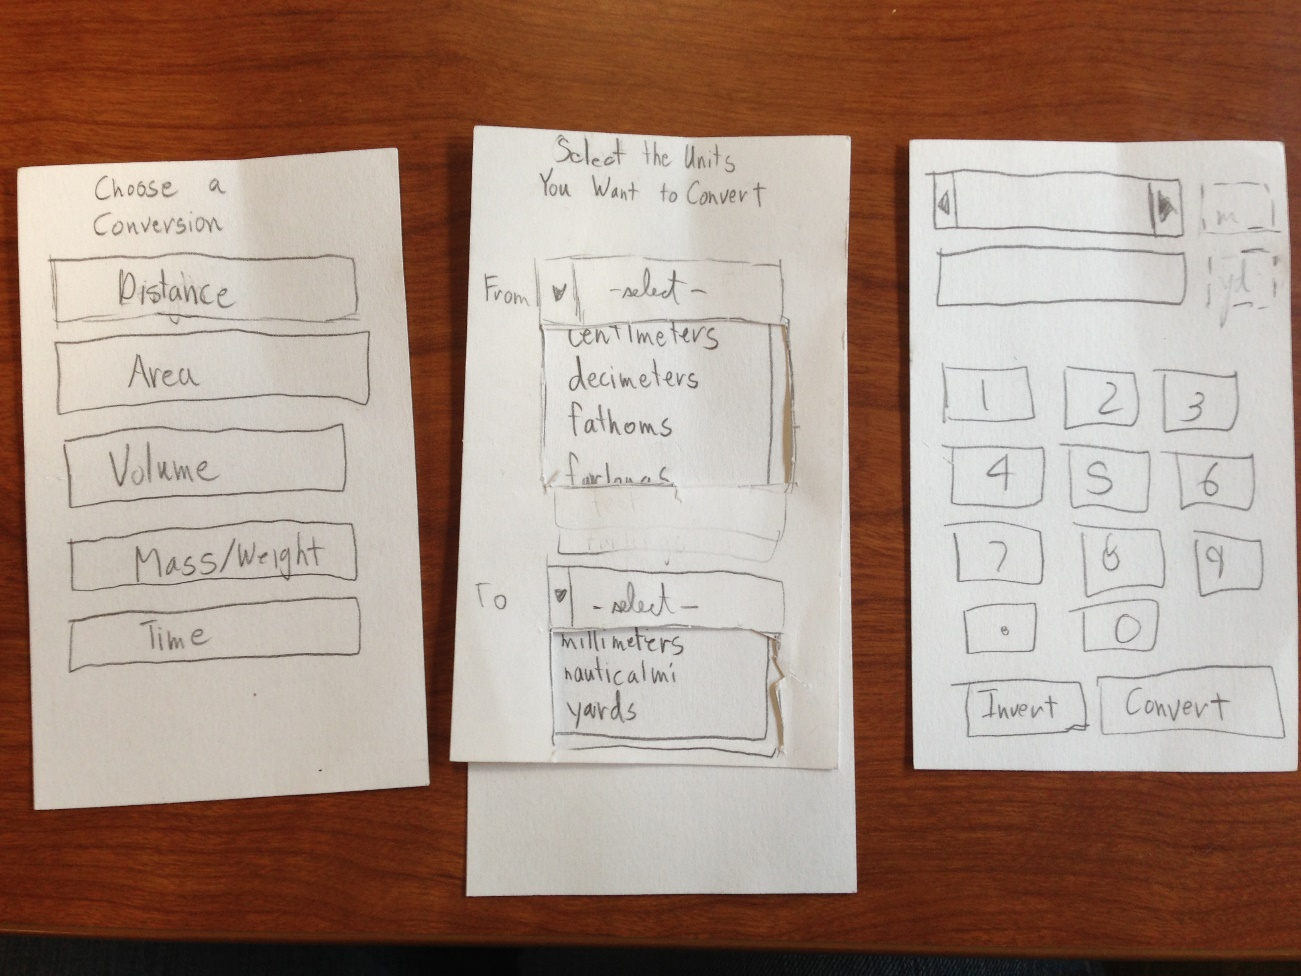 Choose a
Conversion
Distance
Area
Volume
Mass/Weight
Time
Select the Units
You Want to Convert
From
-select-
centimeters
decimeters
fathoms
To
-select-
millimeters
nauticalmi
yards
m
yd
1 2 3
4 5 6
7 8 9
. 0
Invert Convert